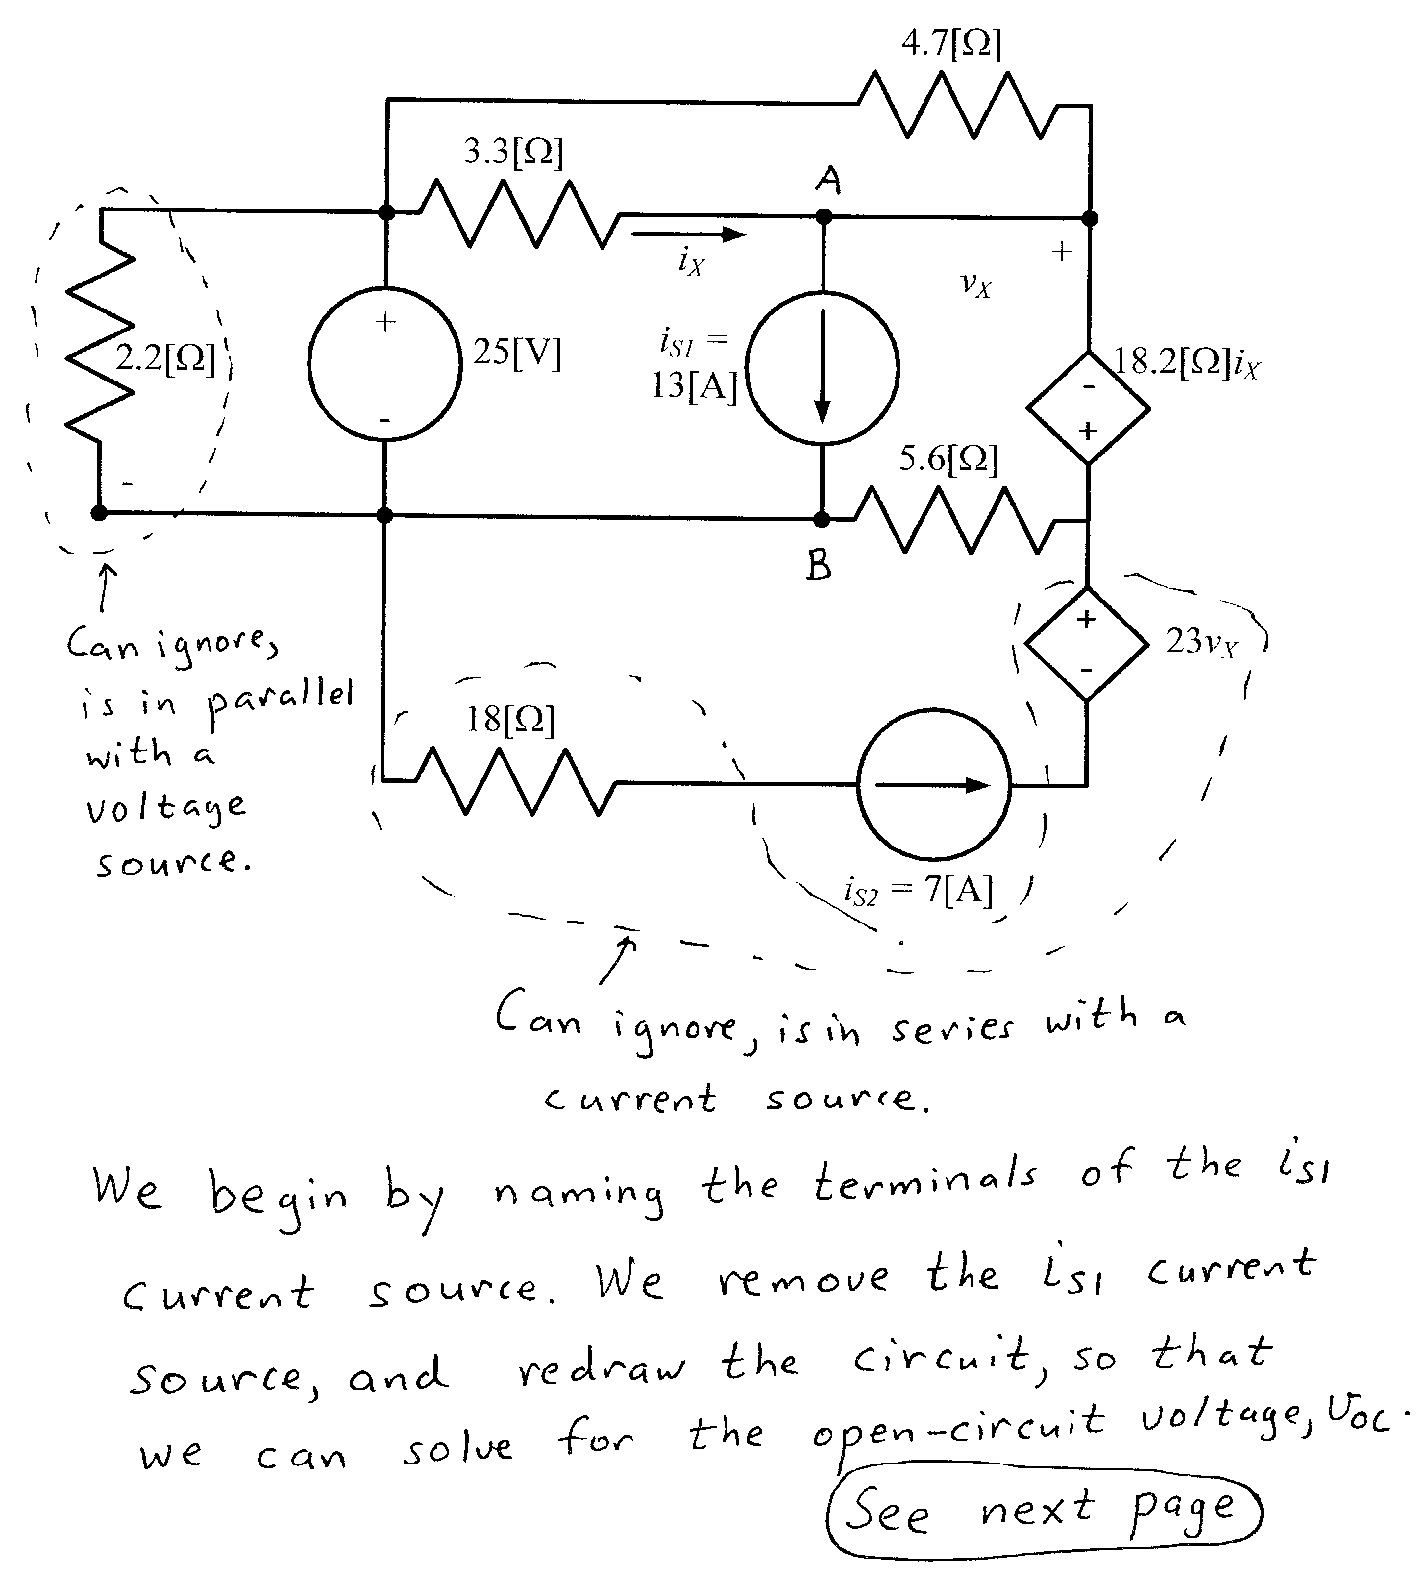 4.7[Ω]
3.3[Ω]
A
iX
+
vX
2.2[Ω]
+
25[V]
-
iS1 =
13[A]
-
+
18.2[Ω]iX
5.6[Ω]
-
B
+
-
23vX
Can ignore,
is in parallel
with a
voltage
source.
18[Ω]
iS2 = 7[A]
Can ignore, is in series with a
current source.
We begin by naming the terminals of the iS1
current source. We remove the iS1 current
source, and redraw the circuit, so that
we can solve for the open-circuit voltage, vOC.
See next page